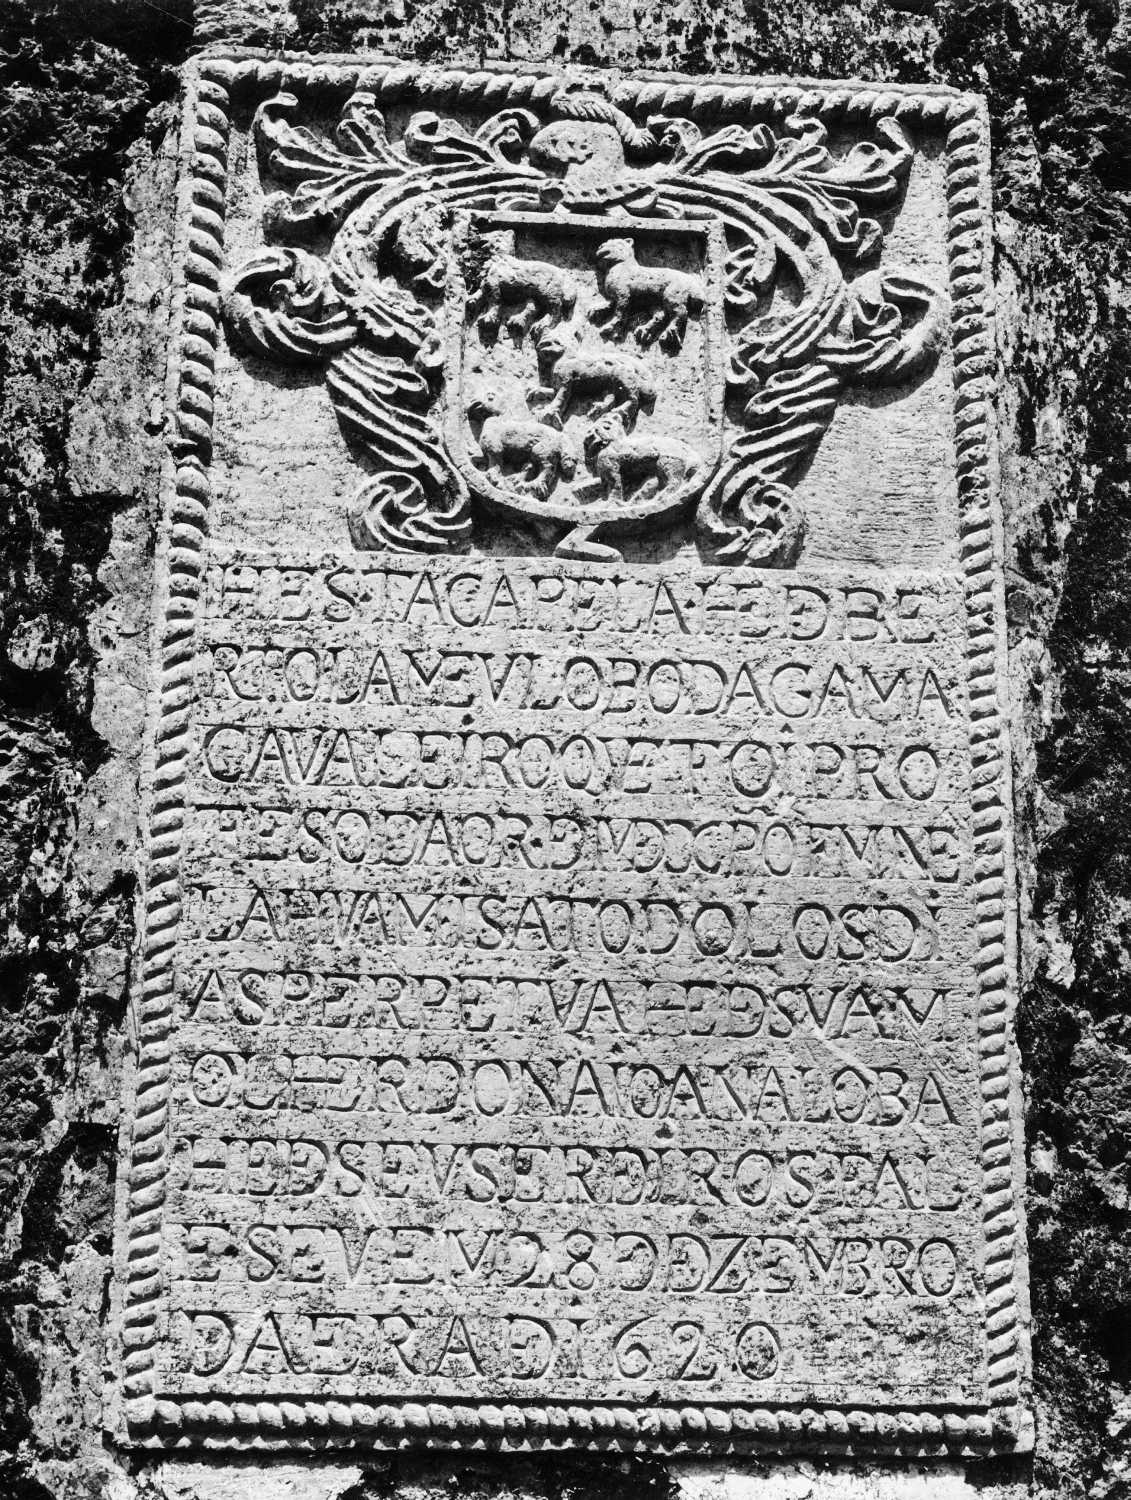 HESTACAPELAAHEDEBE
RIOLAMEVLOBODAGAMA
CAVAGEIROQETOIPRO
FESODAORDEVDCPOFVNE
LAHVAMISATODOLOSD
ASPERPETVAHEDSVAM
OLHERDONAIOANALOBA
HEDSEVSERDROSFAL
ESEVEV28DDZENVBRO
DAERADI620